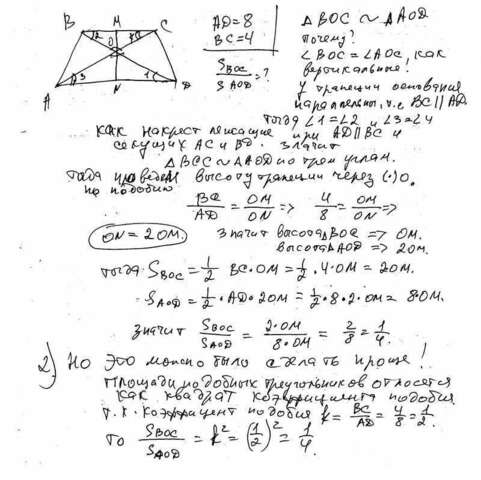 B M C
2 O 4
A 3 N 1 D
AD=8
BC=4
S_BOC / S_AOD = ?
△BOC ~ △AOD
Почему?
∠BOC = ∠AOD, как
вертикальные.
У трапеции основания
параллельны, т.е BC∥AD
тогда ∠1=∠2 и ∠3=∠4
как накрест лежащие при AD∥BC и
секущих AC и BD. Значит
△BOC ~ △AOD по трем углам.
Тогда проведем высоту трапеции через (·)O.
по подобию
BC/AD = OM/ON => 4/8 = OM/ON =>
ON = 2OM. Значит высота △BOC => OM.
высота △AOD => 2OM.
тогда S_BOC = 1/2 BC·OM = 1/2 · 4·OM = 2OM.
S_AOD = 1/2 · AD · 2OM = 1/2 · 8·2·OM = 8·OM.
значит S_BOC / S_AOD = 2·OM / 8·OM = 2/8 = 1/4.
2) Но это можно было сделать проще!
Площади подобных треугольников относятся
как квадрат коэффициента подобия
т.к. коэффициент подобия k = BC/AD = 4/8 = 1/2.
то S_BOC / S_AOD = k² = (1/2)² = 1/4.